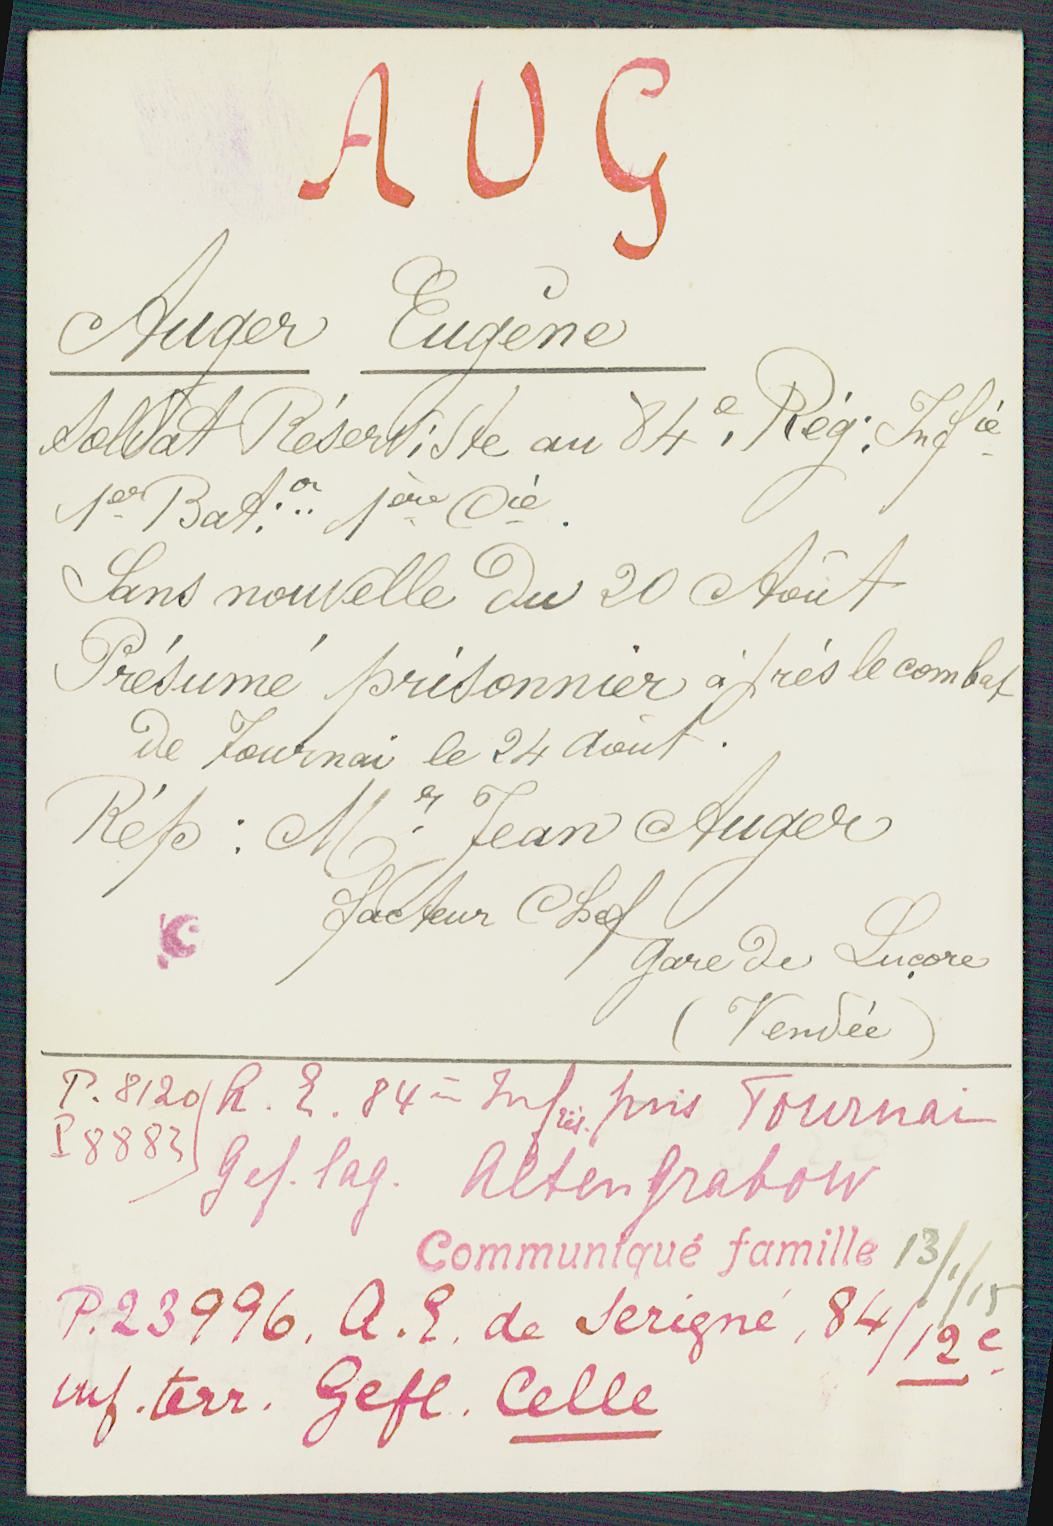 AUG
Auger Eugène
Soldat Réserviste au 84e. Rég: Infie
1er Bat:on 1ère Cie.
Sans nouvelle du 20 Août
Présumé prisonnier àprés le combat
de Tournai le 24 août.
Rép: Mr. Jean Auger
facteur Chef
gare de Luçore
(Vendée)
P. 8120 A. E. 84= Inf. pris Tournai
P 8883 Gef. lag. Altengrabow
Communiqué famille 13/1/15
P.23996. A.E. de Serigné, 84/12e
inf. terr. Gefl. Celle